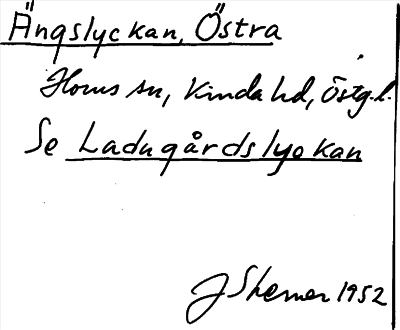 Ängslyckan, Östra
Horns sn, Kinda hd, Östg.l.
Se Ladugårdslyckan
J Skerner 1952